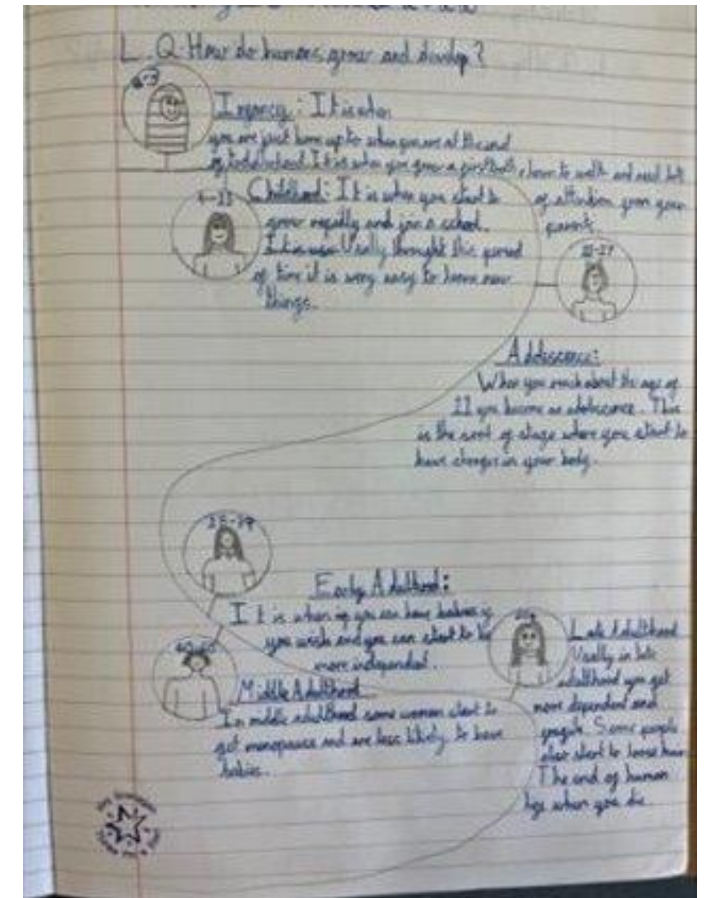 L.Q. How do humans grow and develop?
0-3
Infancy: It is when
you are just born up to when you are at the end
of toddlerhood. It is when you grow a first tooth, learn to walk and need lots
of attention from your
parents.
4-11
Childhood: It is when you start to
grow rapidly and join a school.
Usually throught this period
of time it is very easy to learn new
things.
Adolescence:
When you reach about the age of
11 you become an adolescence. This
is the sort of stage where you start to
have changes in your body.
Early Adulthood:
It is when you can have babies if
you wish and you can start to be
more independent.
Middle Adulthood
In middle adulthood some women start to
get menopause and are less likely to have
babies.
Late Adulthood
Usally in late
adulthood you get
more dependent and
fragile. Some people
also start to loose hair
The end of human
life when you die.